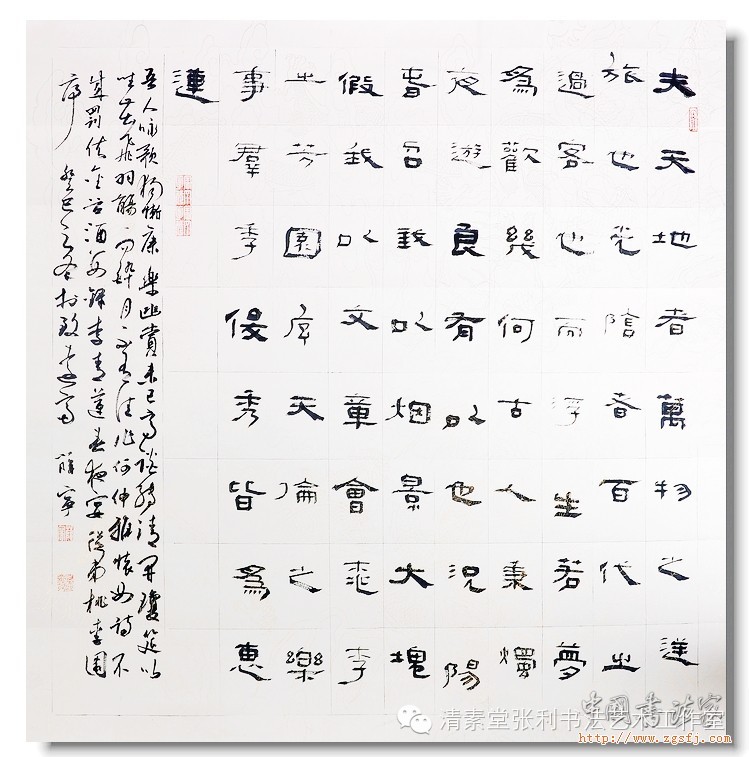 夫天地者萬物之逆
旅也光陰者百代之
過客也而浮生若夢
爲歡幾何古人秉燭
夜遊良有以也況陽
春召我以烟景大塊
假我以文章會桃李
之芳園序天倫之樂
事羣季俊秀皆爲惠
連
吾人咏歌獨慚康樂幽賞未已高談轉清開瓊筵以
坐花飛羽觴而醉月不有佳作何伸雅懷如詩不
成罰依金谷酒數錄李青蓮春夜宴從弟桃李園
序 癸巳之冬於致遠齋 薛寧
中國書法家
清素堂张利书法艺术工作室
http://www.zgsfj.com